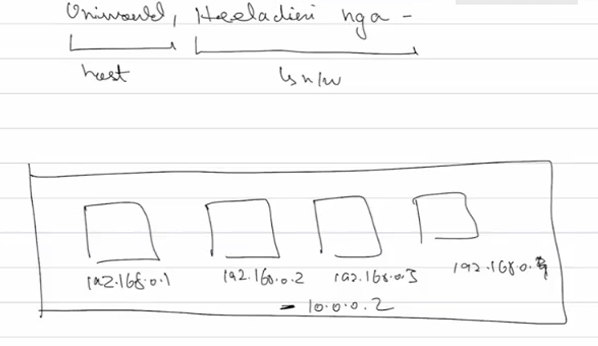 Uniworld, Heeladieri nga -
host
n/w
192.168.0.1 192.168.0.2 192.168.0.3 192.168.0.4
- 10.0.0.2